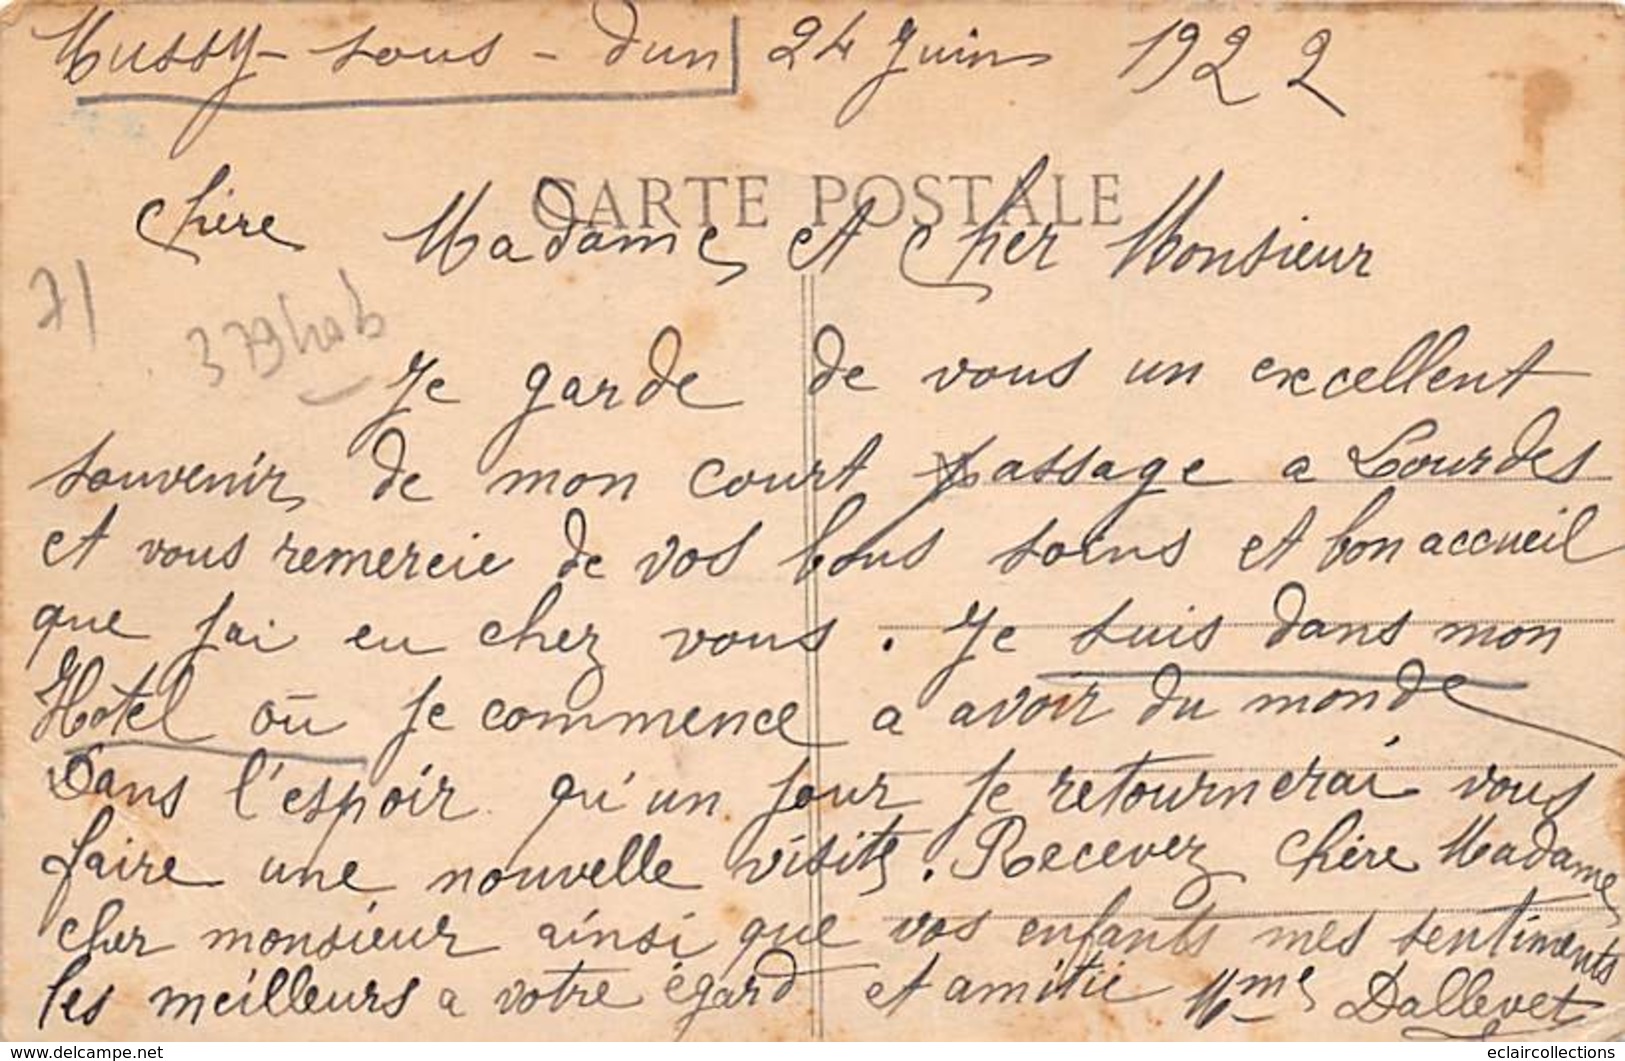 Mussy-sous-Dun 24 Juin 1922
CARTE POSTALE
Chère Madame et Cher Monsieur
71
Je garde de vous un excellent
souvenir de mon court passage a Lourdes
et vous remercie de vos bons soins et bon accueil
que j'ai eu chez vous. Je suis dans mon
Hotel où je commence a avoir du monde
Dans l'espoir qu'un jour je retournerai vous
faire une nouvelle visite. Recevez Chère Madame
cher monsieur ainsi que vos enfants mes sentiments
les meilleurs a votre égard et amitié Mme Dallevet
eclaircollections